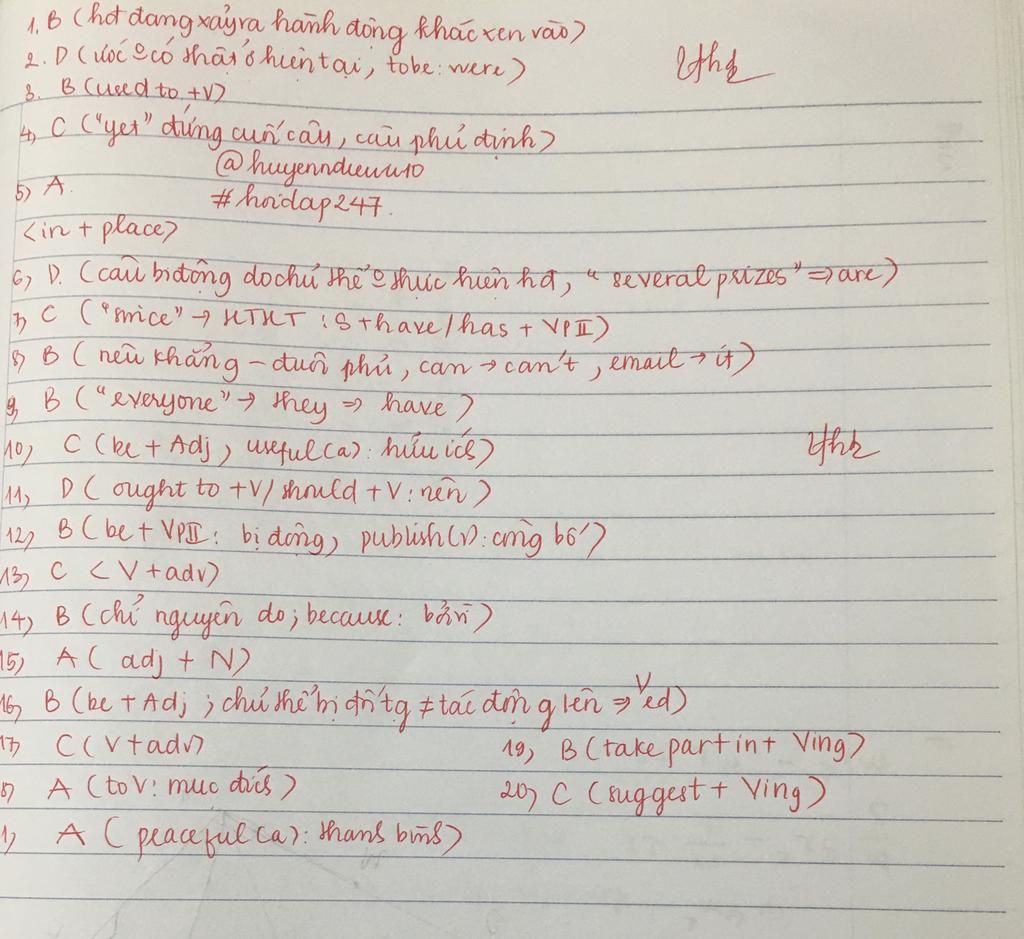 1, B (hđ đang xảy ra hành động khác xen vào)
2. D (ước o có thật ở hiện tại, tobe: were)
3. B (used to + V)
4, C ("yet" đứng cuối câu, câu phủ định)
@huyenndieuu10
5) A.
#hoidap247.
<in + place>
6, D. (câu bị động do chủ thể o thực hiện hđ, "several prizes" => are)
7, C ("since" → HTHT : S + have/has + VPII)
8) B (nếu khẳng - đuôi phủ, can → can't, email → it)
9, B ("everyone" → they => have)
10, C (be + Adj, useful (a): hữu ích)
11, D (ought to + V/ should + V: nên)
12, B (be + VPII: bị động, publish (v): công bố)
13, C <V + adv)
14, B (chỉ nguyên do; because: bởi vì)
15) A (adj + N)
16, B (be + Adj ; chủ thể bị đối tg ≠ tác động lên => Ved)
17, C (V + adv) 19, B (take part in + Ving)
8) A (to V: mục đích) 20, C (suggest + Ving)
1) A (peaceful (a): thanh bình)